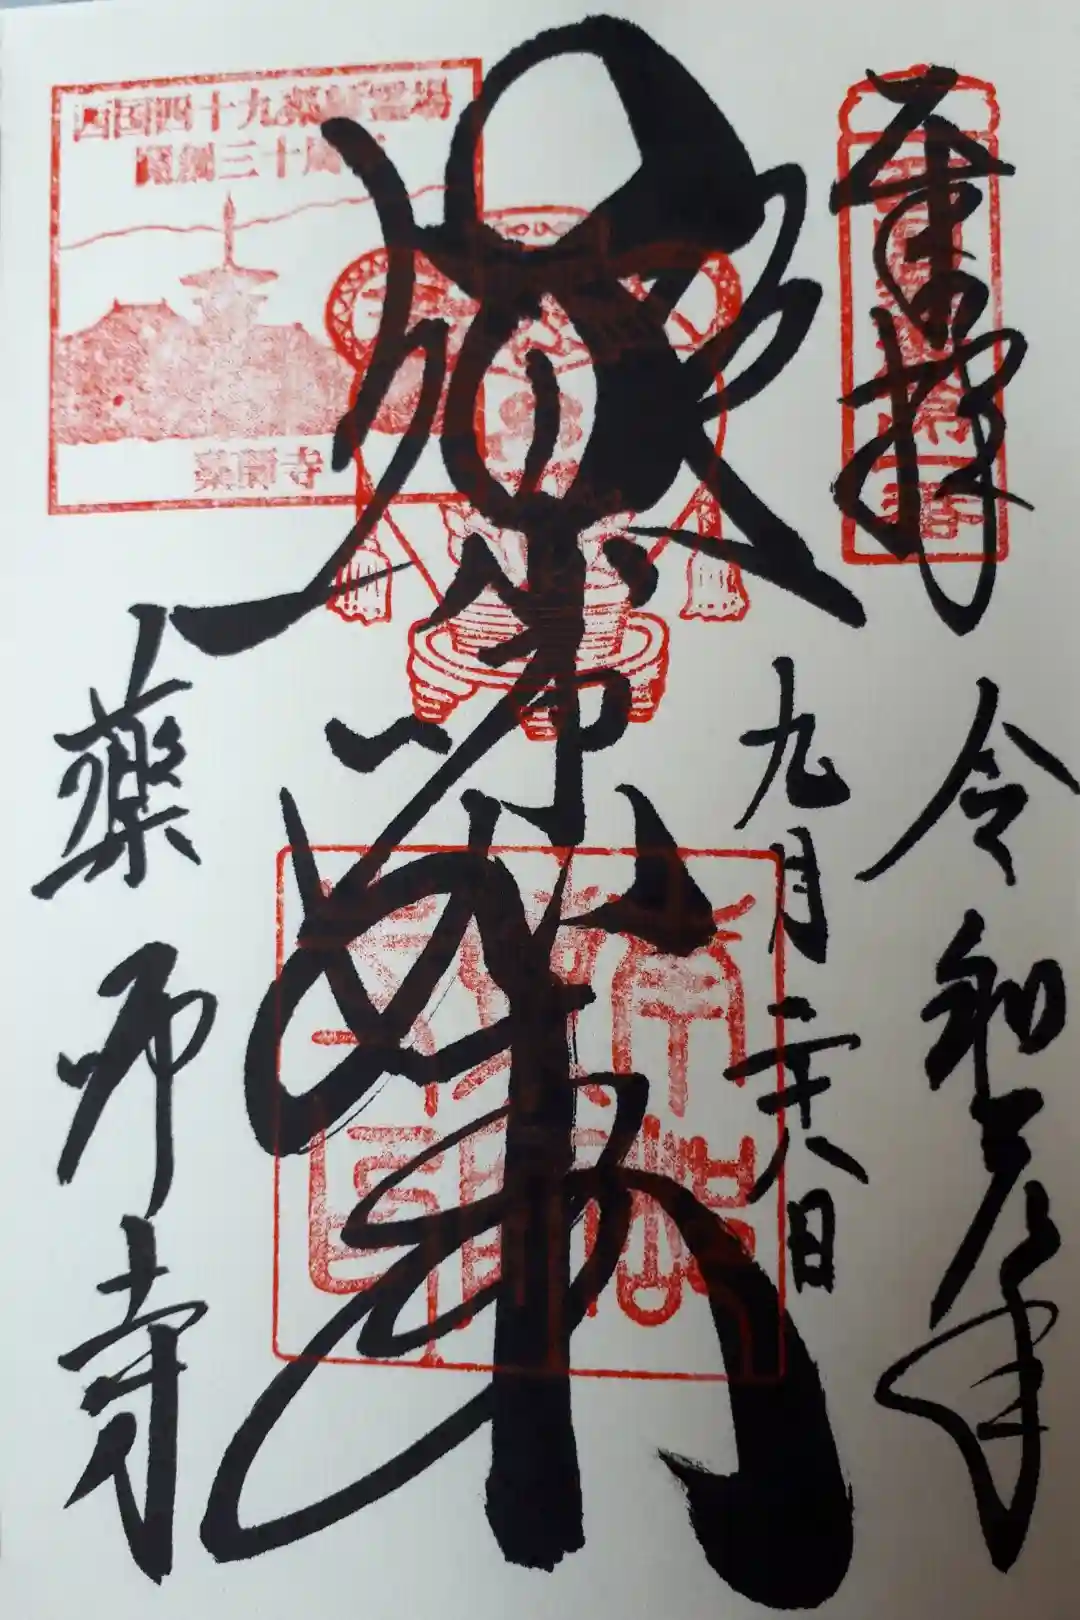 奉拝
令和元年
九月二十八日
薬師如来
薬師寺
西国四十九薬師霊場
開創三十周年
薬師寺